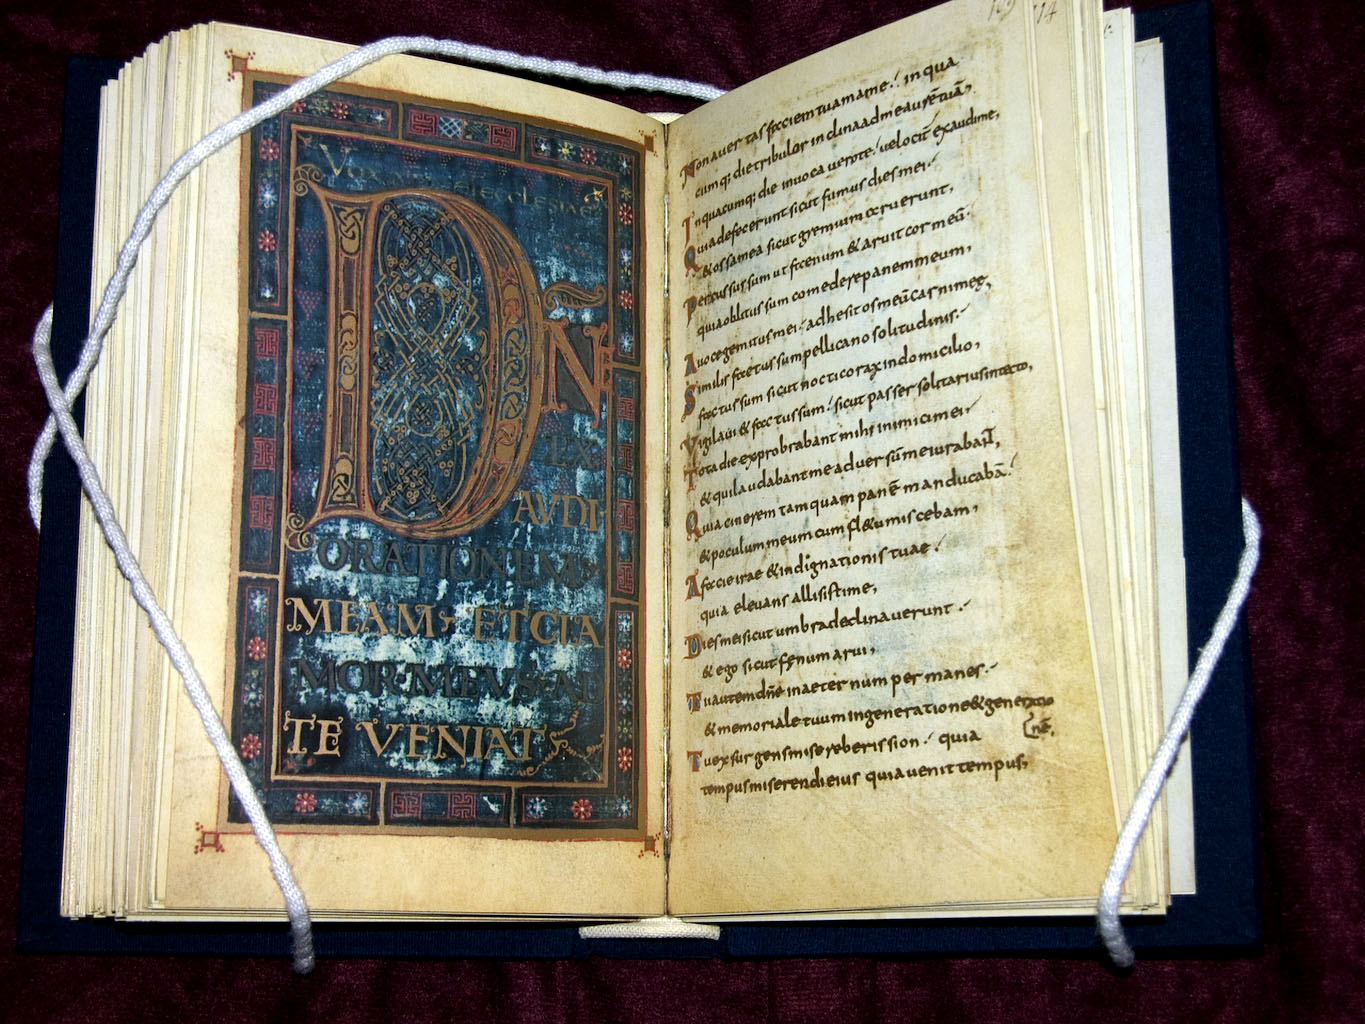 Vox ecclesiae
DÑE
EX
AVDI
ORATIONEM
MEAM ETCLA
MOR MEVS AD
TE VENIAT
109 114
Non auertas faciem tuam a me. in qua
cumq; die tribulor inclina ad me aurē tuā,
In quacumq; die inuocauero te. velocit exaudi me,
Quia defecerunt sicut fumus dies mei.
& ossa mea sicut gremium aruerunt,
Percussus sum ut faenum & aruit cor meū.
quia oblitus sum comedere panem meum,
A uoce gemitus mei. adhesit os meū carni meę,
Similis factus sum pellicano solitudinis.
factus sum sicut nocticorax in domicilio,
Vigilaui & factus sum. sicut passer solitarius in tecto,
Tota die exprobrabant mihi inimici mei.
& qui laudabant me aduersū me iurabant,
Quia cinerem tamquam panē manducabā.
& poculum meum cum fl&u miscebam,
A facie irae & indignationis tuae.
quia eleuans allisisti me,
Dies mei sicut umbra declinauerunt.
& ego sicut fęnum arui,
Tu autem dn̄e in aeternum permanes.
& memoriale tuum in generatione & generatio
nē,
Tu exsurgens misereberis sion. quia
tempus miserendi eius quia uenit tempus,